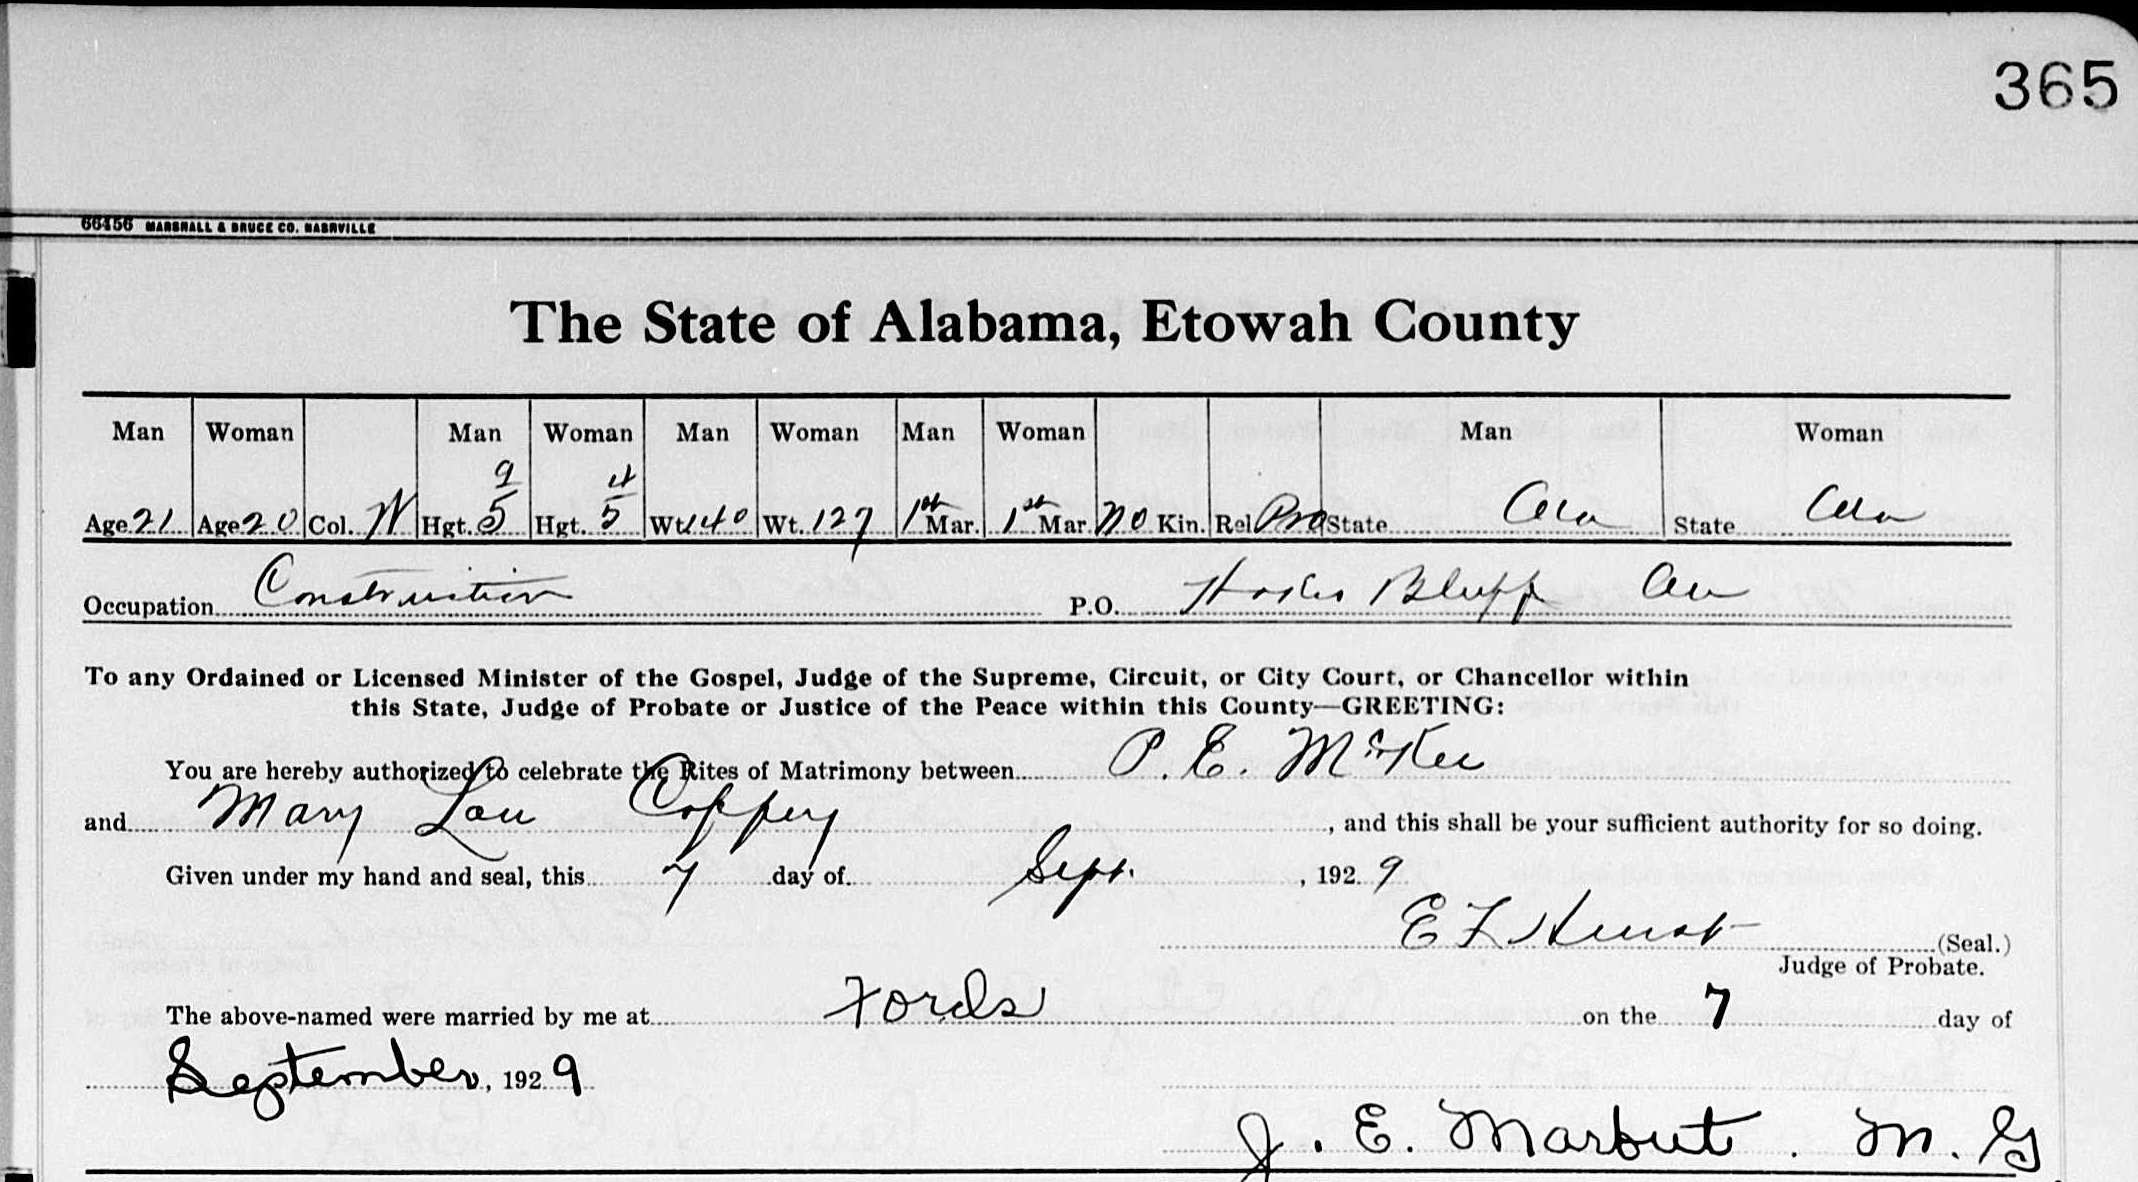 365
66456 MARSHALL & BRUCE CO. NASHVILLE
The State of Alabama, Etowah County
Man Woman Man Woman Man Woman Man Woman Man Woman
9 4
Age 21 Age 20 Col. W Hgt. 5 Hgt. 5 Wt. 140 Wt. 127 1st Mar. 1st Mar. no Kin. Rel Pro State Ala State Ala
Occupation Construction P.O. Hokes Bluff Ala
To any Ordained or Licensed Minister of the Gospel, Judge of the Supreme, Circuit, or City Court, or Chancellor within
this State, Judge of Probate or Justice of the Peace within this County—GREETING:
You are hereby authorized to celebrate the Rites of Matrimony between P. E. McKee
and Mary Lou Coffey, and this shall be your sufficient authority for so doing.
Given under my hand and seal, this 7 day of Sept., 192 9
E L Hurst (Seal.)
Judge of Probate.
The above-named were married by me at Fords on the 7 day of
September, 192 9
J. E. Marbut. M. G